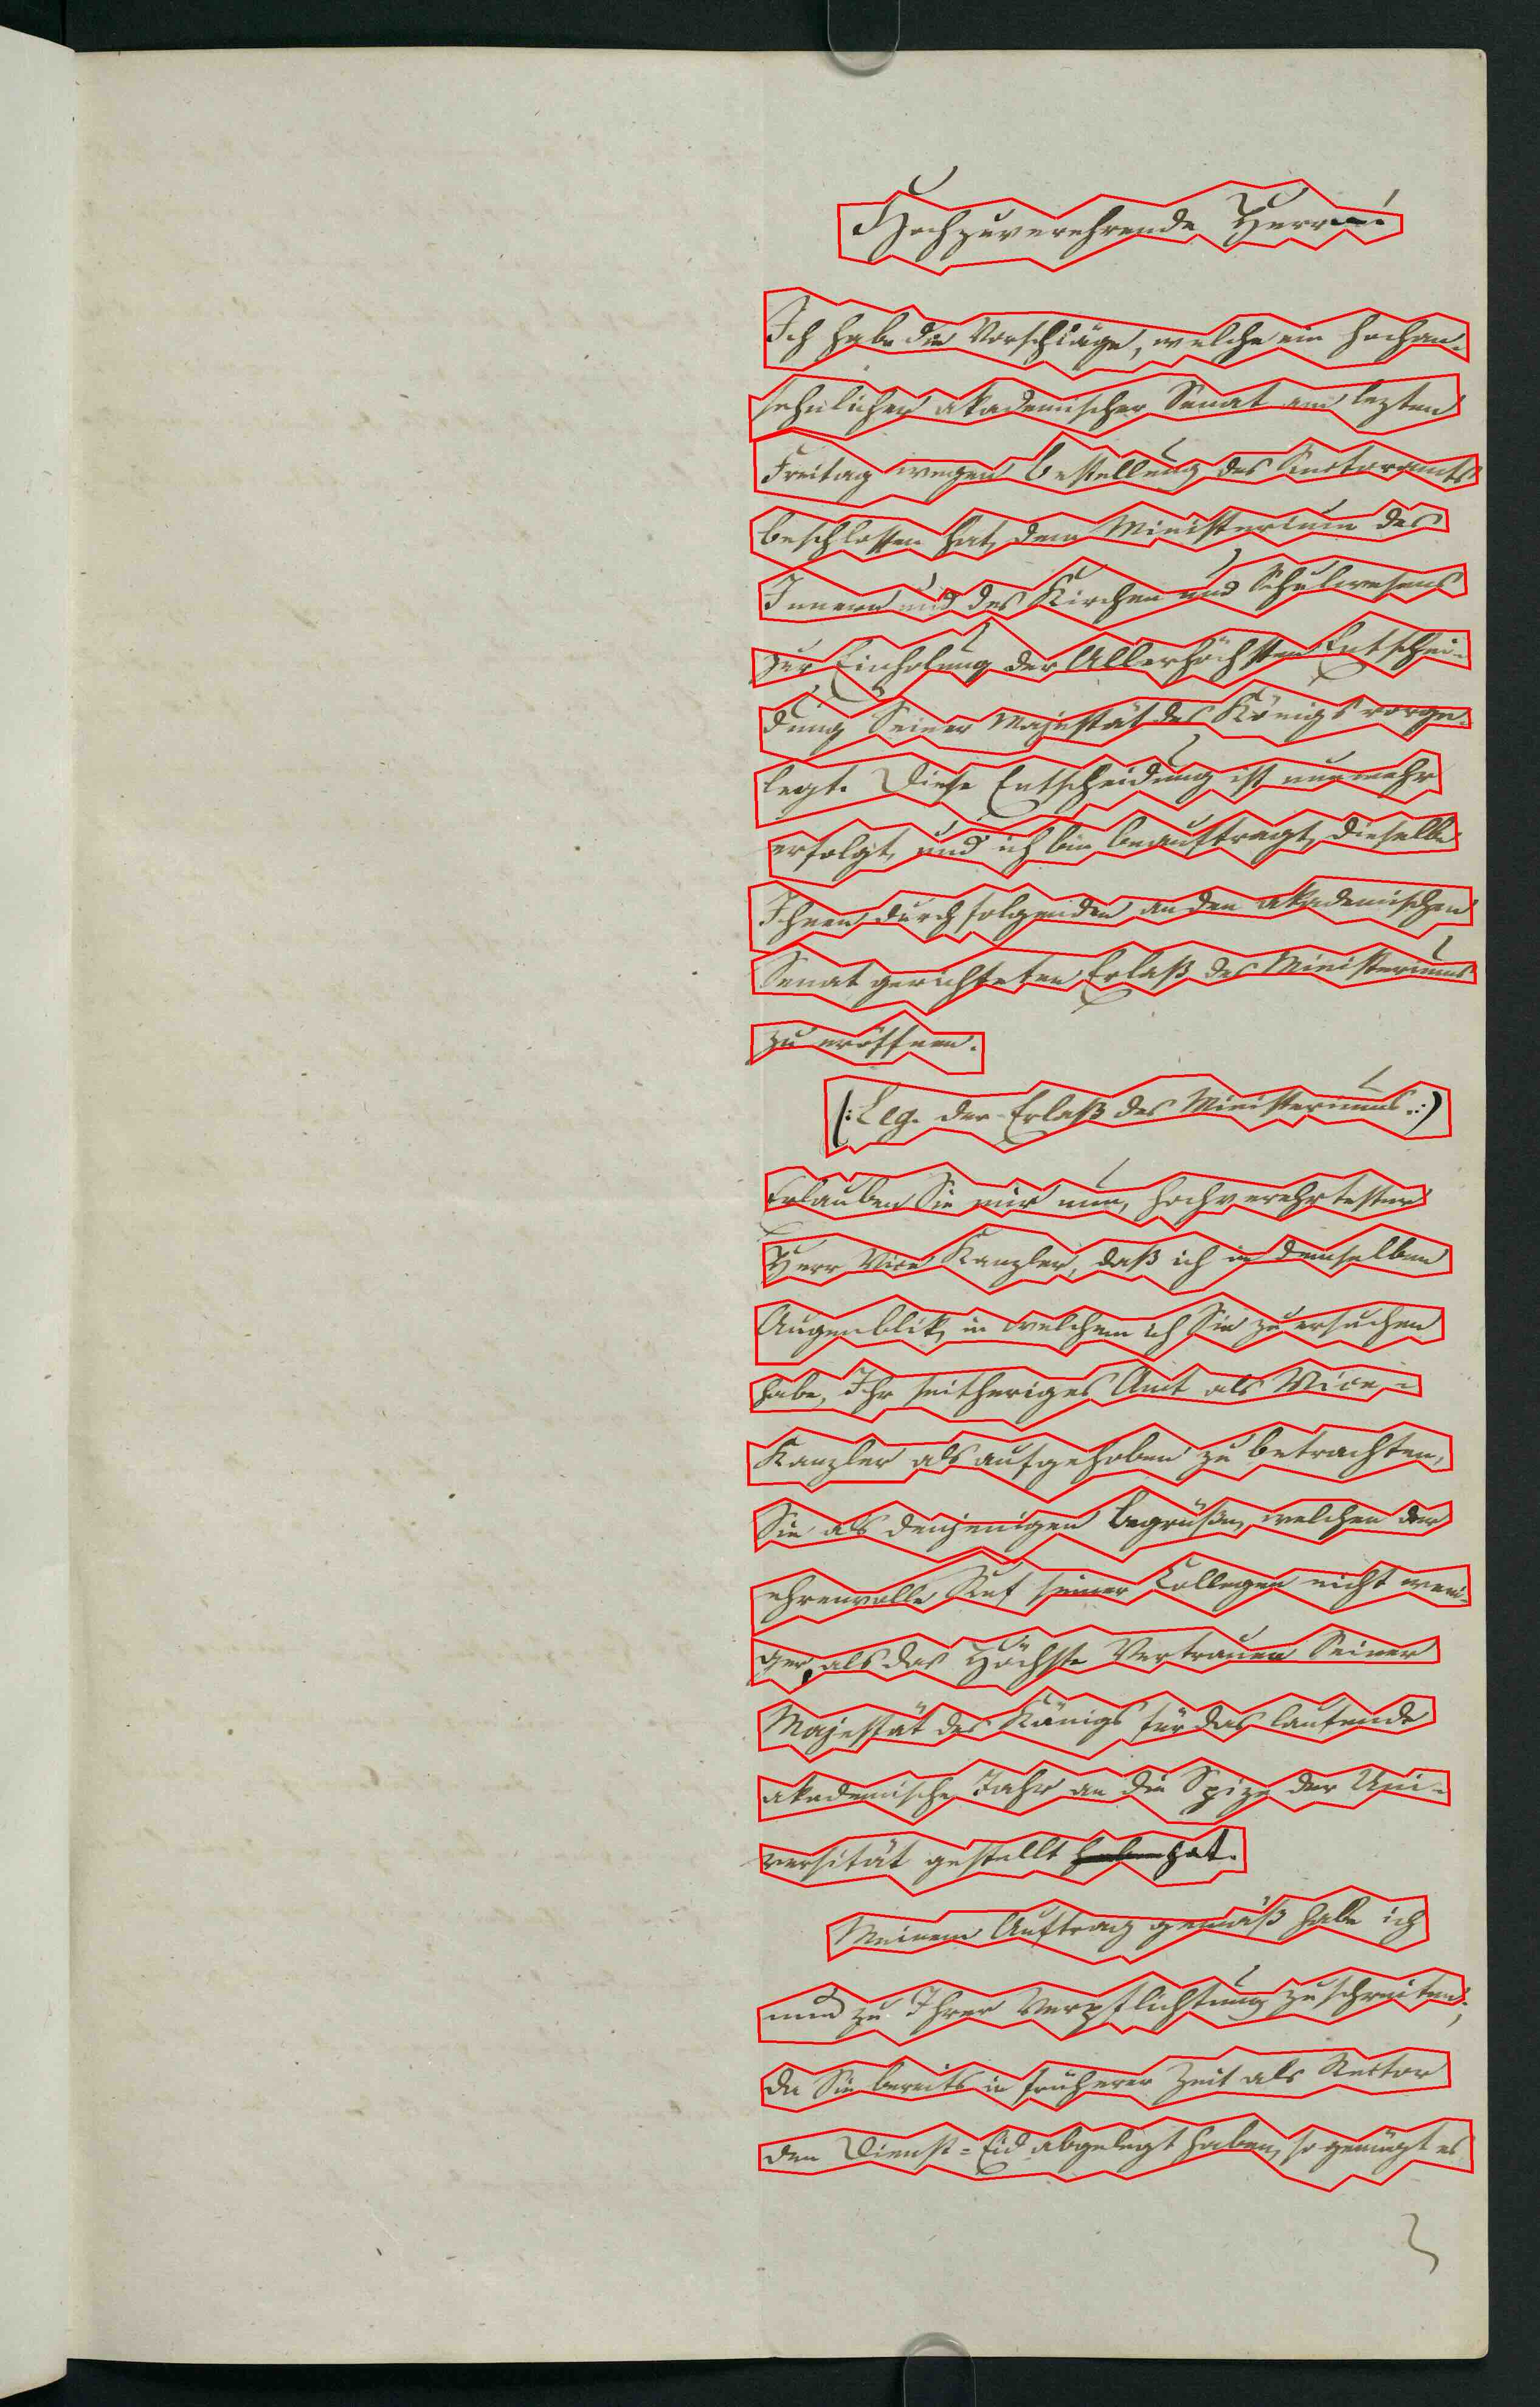 Hochzuverehrende Herrn!
Ich habe die Vorschläge, welche ein hochan-
sehnlicher akademischer Senat am lezten
Freitag wegen Bestellung des Rectoramts
beschlossen hat, dem Ministerium des
Innern und des Kirchen und Schulwesens
zur Einholung der Allerhöchsten Entschei-
dung Seiner Majestät des Königs vorge-
legt. Diese Entscheidung ist nunmehr
erfolgt, und ich bin beauftragt, dieselbe
Ihnen durch folgenden an den akademischen
Senat gerichteten Erlaß des Ministeriums
zu eröffnen.
(: Leg. der Erlaß des Ministeriums. :)
Erlauben Sie mir nun, hochverehrtester
Herr Vice Kanzler, daß ich in demselben
Augenblik, in welchem ich Sie zu ersuchen
habe, Ihr seitheriges Amt als Vice-
Kanzler als aufgehoben zu betrachten,
Sie als denjenigen begrüße, welchen der
ehrenvolle Ruf seiner Collegen nicht weni-
ger, als das Höchste Vertrauen Seiner
Majestät des Königs für das laufende
akademische Jahr an die Spize der Uni-
versität gestellt haben hat.
Meinem Auftrag gemäß habe ich
nun zu Ihrer Verpflichtung zu schreiten;
da Sie bereits in früherer Zeit als Rector
den Dienst-Eid abgelegt haben, so genügt es